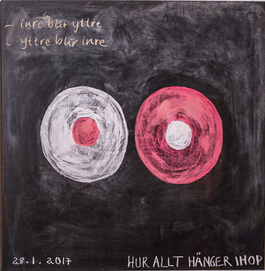 - inre blir yttre
- yttre blir inre
28.1.2017
HUR ALLT HÄNGER IHOP